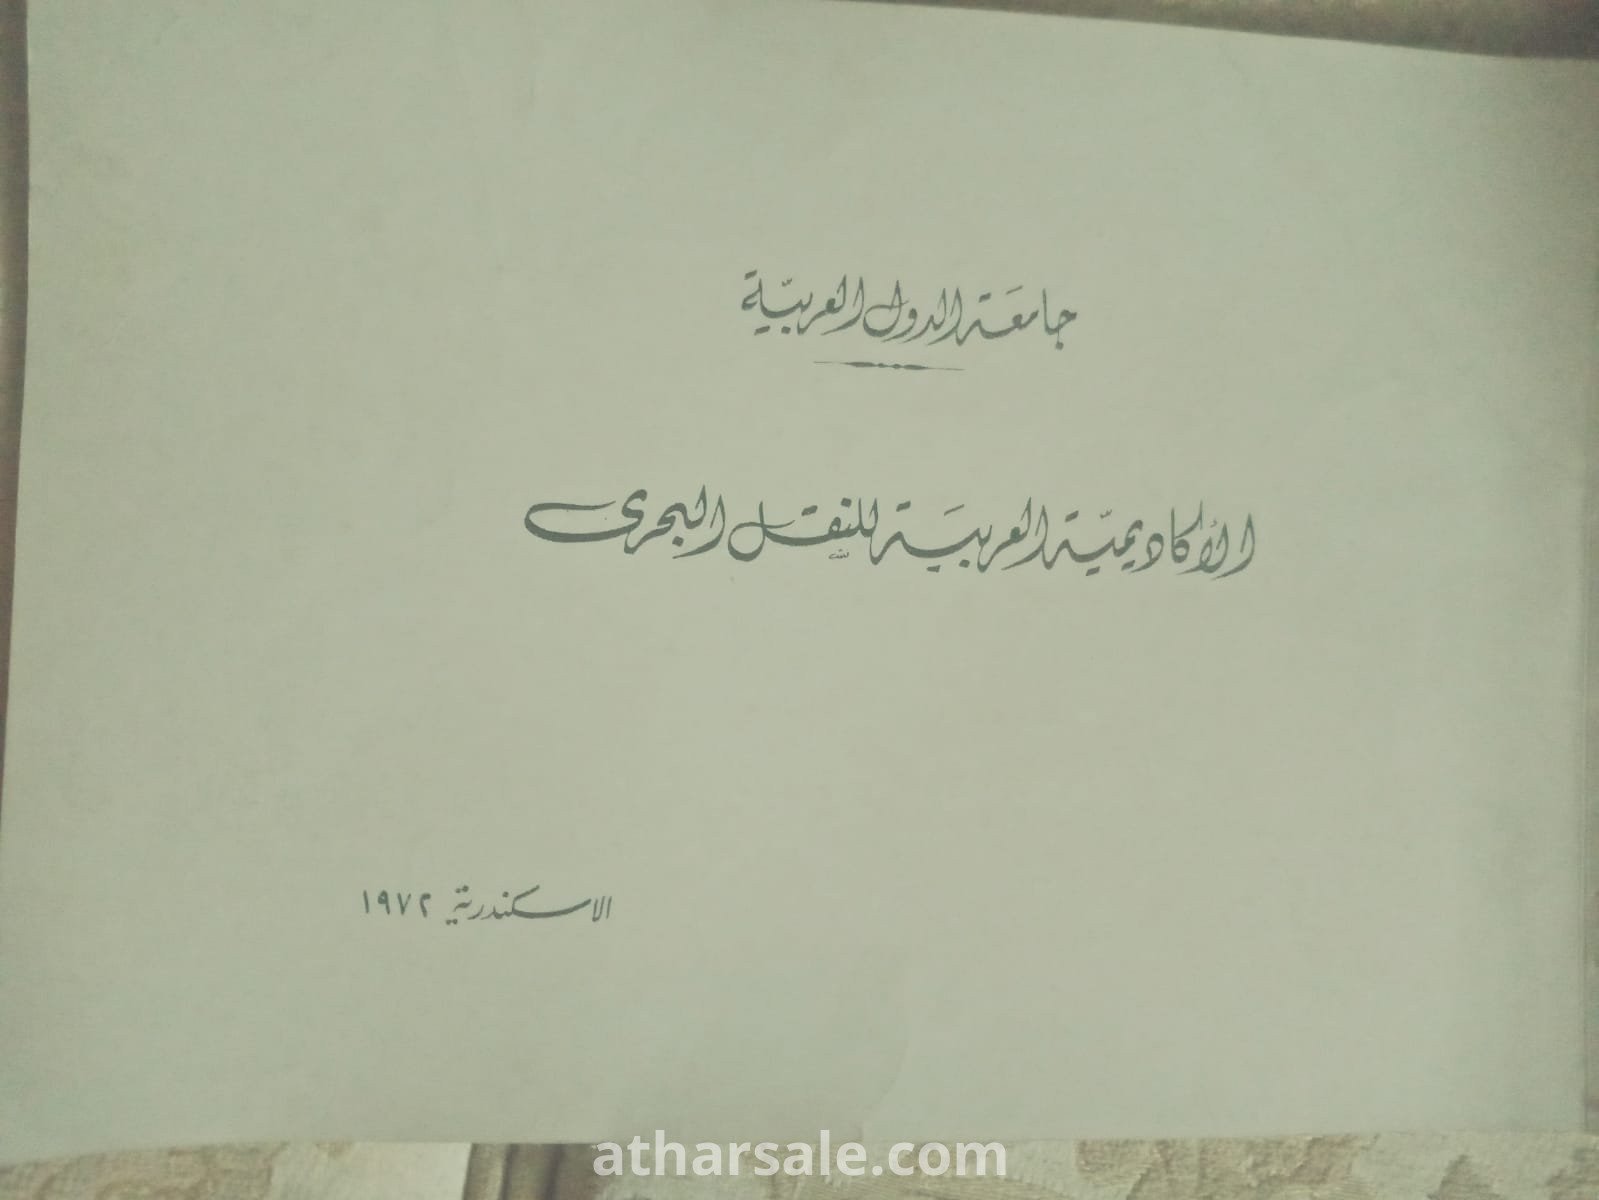 جامعة الدول العربيّة
الأكاديميّة العربية للنقل البحرى
الاسكندرية ١٩٧٢
atharsale.com